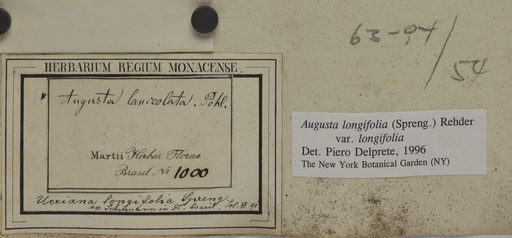 HERBARIUM REGIUM MONACENSE.
Augusta lanceolata. Pohl.
Martii Herbar. Florae
Brasil. No 1000
Ucriana longifolia Spreng.
Schumann in Fl. brasil.
63-94/54
Augusta longifolia (Spreng.) Rehder
var. longifolia
Det. Piero Delprete, 1996
The New York Botanical Garden (NY)